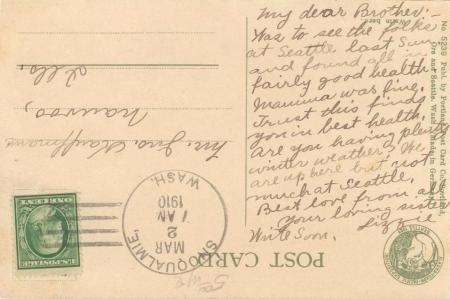 My dear Brother:-
Was to see the folks
at Seattle last Sun.
and found all in
fairly good health
Mamma was fine.
Trust this finds
you in best health.
Are you having plenty
winter weather? We
are up here but not
much at Seattle.
Best love from all
Your loving sister
Write soon. Lizzie
No 5239 Publ. by Portland Post Card Co., Portland,
Ore and Seattle, Wash. Made in Germany
POST CARD
SNOQUALMIE,
WASH.
MAR
2
AM
1910
U.S. POSTAGE
ONE CENT
Mr. Jno. Kauffmann
Nauvoo,
Ills.